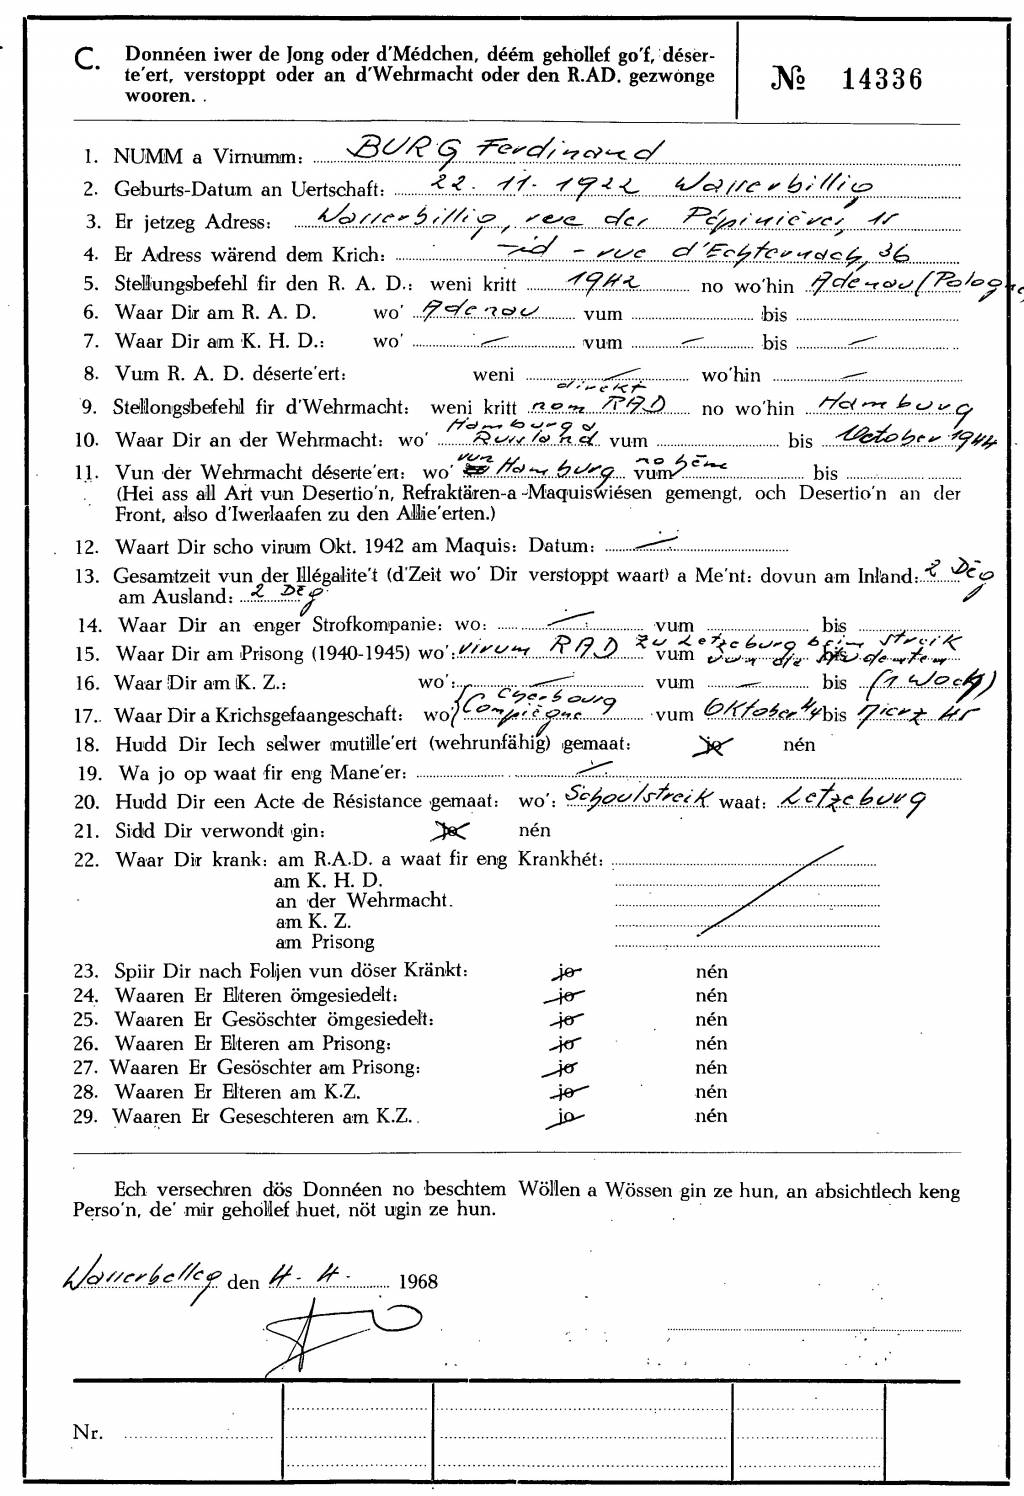 C. Donnéen iwer de Jong oder d'Médchen, déém gehollef go'f, déser-
te'ert, verstoppt oder an d'Wehrmacht oder den R.AD. gezwonge
wooren.
№ 14336
1. NUMM a Virnumm: BURG Ferdinand
2. Geburts-Datum an Uertschaft: 22. 11. 1922 Wasserbillig
3. Er jetzeg Adress: Wasserbillig, rue des Pépinières, 11
4. Er Adress wärend dem Krich: -id- rue d'Echternach, 36
5. Stellungsbefehl fir den R. A. D.: weni kritt 1942 no wo'hin Adenau (Pologne
6. Waar Dir am R. A. D. wo' Adenau vum bis
7. Waar Dir am K. H. D.: wo' — vum — bis —
8. Vum R. A. D. déserte'ert: weni — wo'hin —
direkt
9. Stellongsbefehl fir d'Wehrmacht: weni kritt nom RAD no wo'hin Hamburg
Hamburg a
10. Waar Dir an der Wehrmacht: wo' Russland vum bis October 1944
11. Vun der Wehrmacht déserte'ert: wo' vun Hamburg vum no hém bis
(Hei ass all Art vun Desertio'n, Refraktären-a -Maquiswiésen gemengt, och Desertio'n an der
Front, also d'Iwerlaafen zu den Allie'erten.)
12. Waart Dir scho virum Okt. 1942 am Maquis: Datum: —
13. Gesamtzeit vun der Illégalite't (d'Zeit wo' Dir verstoppt waart) a Me'nt: dovun am Inland: 2 Dég
am Ausland: 2 Dég
14. Waar Dir an enger Strofkompanie: wo: — vum bis
15. Waar Dir am Prison͏g (1940-1945) wo': virum RAD zu Letzeburg beim Streik
vum vun die Studenten bis
16. Waar Dir am K. Z.: wo': — vum — bis (1 Woch)
Cherbourg
17. Waar Dir a Krichsgefaangeschaft: wo' Compiègne vum Oktober 44 bis Mierz 45
18. Hudd Dir Iech selwer mutille'ert (wehrunfähig) gemaat: jo nén
19. Wa jo op waat fir eng Mane'er: —
20. Hudd Dir een Acte de Résistance gemaat: wo': Schoulstreik waat: Letzeburg
21. Sidd Dir verwondt gin: jo nén
22. Waar Dir krank: am R.A.D. a waat fir eng Krankhét:
am K. H. D.
an der Wehrmacht.
am K. Z.
am Prisong
23. Spiir Dir nach Foljen vun döser Kränkt: jo nén
24. Waaren Er Elteren ömgesiedelt: jo nén
25. Waaren Er Gesöschter ömgesiedelt: jo nén
26. Waaren Er Elteren am Prisong: jo nén
27. Waaren Er Gesöschter am Prisong: jo nén
28. Waaren Er Elteren am K.Z. jo nén
29. Waaren Er Geseschteren am K.Z. jo nén
Ech versechren dös Donnéen no beschtem Wöllen a Wössen gin ze hun, an absichtlech keng
Perso'n, de' mir gehollef huet, nöt ugin ze hun.
Wasserbelleg den 4. 4. 1968
Nr.